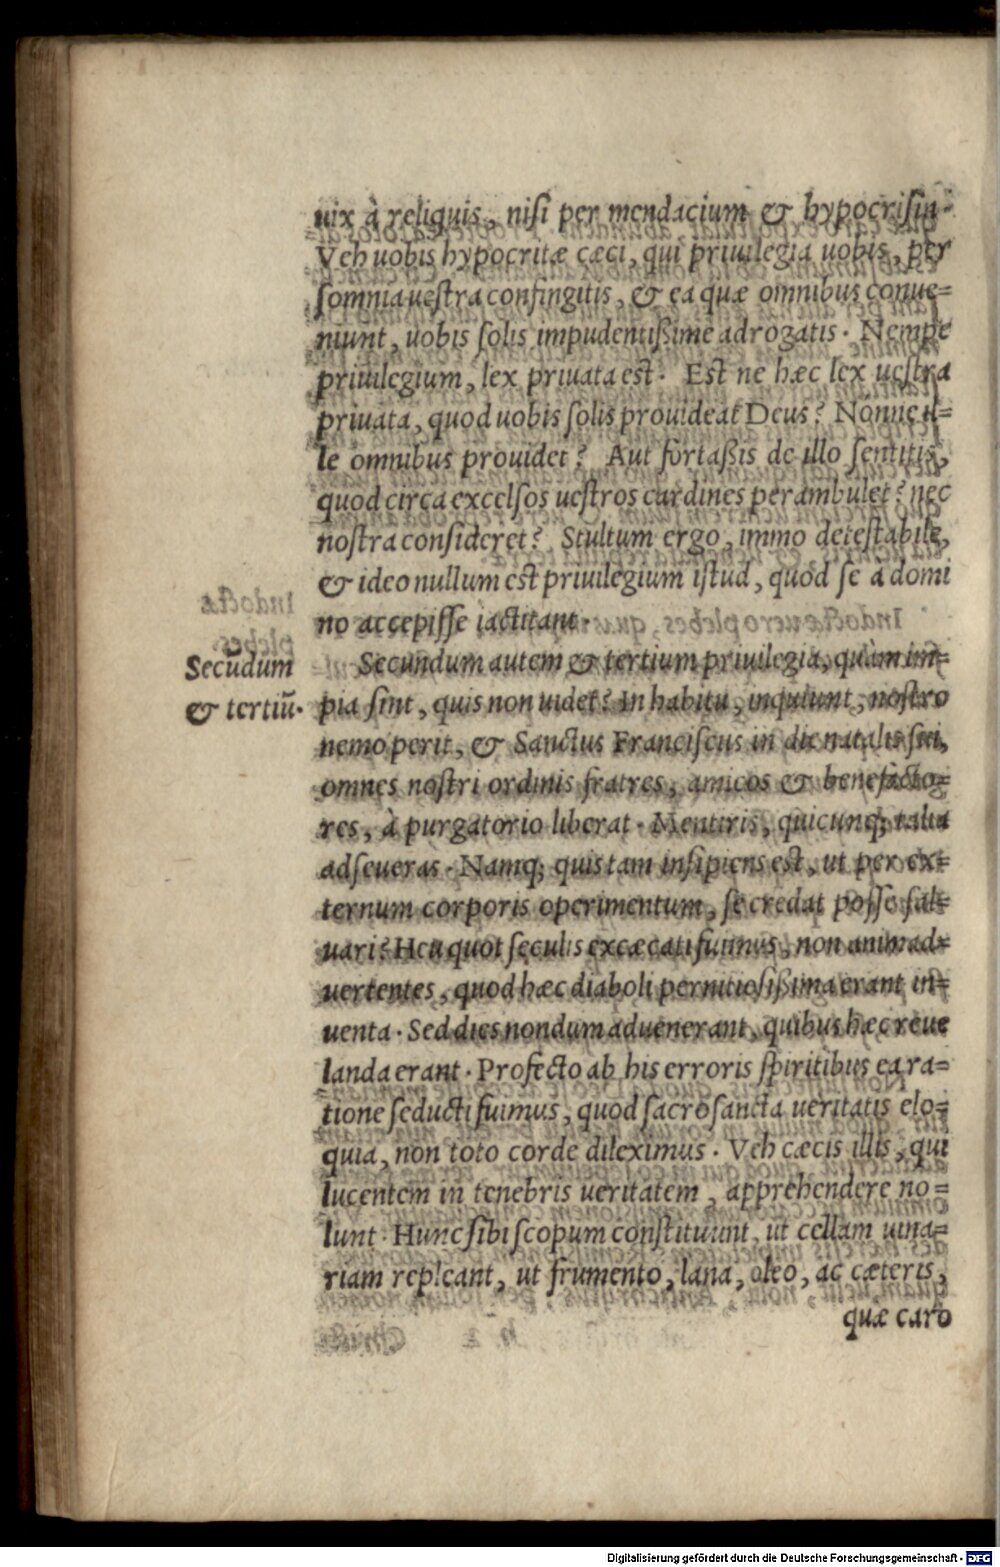 uix à reliquis, nisi per mendacium & hypocrisin.
Veh uobis hypocritæ cæci, qui priuilegia uobis, per
somnia uestra confingitis, & ea quæ omnibus conue=
niunt, uobis solis impudentißime adrogatis. Nempe
priuilegium, lex priuata est. Est ne hæc lex uestra
priuata, quod uobis solis prouideat Deus? Nónne il=
le omnibus prouidet? Aut fortaßis de illo sentitis,
quod circa excelsos uestros cardines perambulet? nec
nostra consideret? Stultum ergo, immo detestabile,
& ideo nullum est priuilegium istud, quod se à domi
no accepisse iactitant.
Secūdum
& tertiū.
Secundum autem & tertium priuilegia, quàm im=
pia sint, quis non uidet? In habitu, inquiunt, nostro
nemo perit, & Sanctus Franciscus in die natalis sui,
omnes nostri ordinis fratres, amicos & benefacto=
res, à purgatorio liberat. Mentiris, quicunq; talia
adseueras. Namq; quis tam insipiens est, ut per ex=
ternum corporis operimentum, se credat posse sal=
uari? Heu quot seculis excæcati fuimus, non animad=
uertentes, quod hæc diaboli pernitiosißima erant in=
uenta. Sed dies nondum aduenerant, quibus hæc reue
landa erant. Profecto ab his erroris spiritibus ea ra=
tione seducti fuimus, quod sacrosancta ueritatis elo=
quia, non toto corde dileximus. Veh cæcis illis, qui
lucentem in tenebris ueritatem, apprehendere no=
lunt. Hunc sibi scopum constituunt, ut cellam uina=
riam repleant, ut frumento, lana, oleo, ac cæteris,
quæ caro
Digitalisierung gefördert durch die Deutsche Forschungsgemeinschaft - DFG